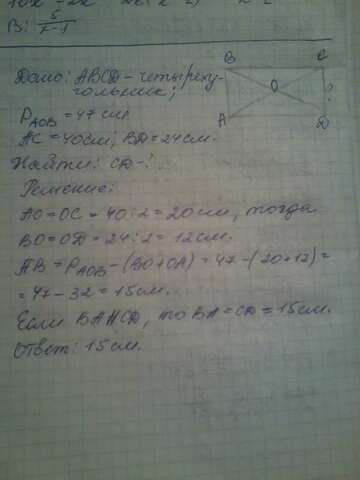 B: 5/x-5
Дано: ABCD - четырёху-
гольник;
P AOB = 47 см
AC = 40 см; BD = 24 см.
Найти: CD - ?
Решение:
AO = OC = 40:2 = 20 см, тогда
BO = OD = 24:2 = 12 см.
AB = P AOB - (BO+OA) = 47 - (20+12) =
= 47 - 32 = 15 см.
Если BA CD, то BA = CD = 15 см.
Ответ: 15 см.
B C
O
?
A D